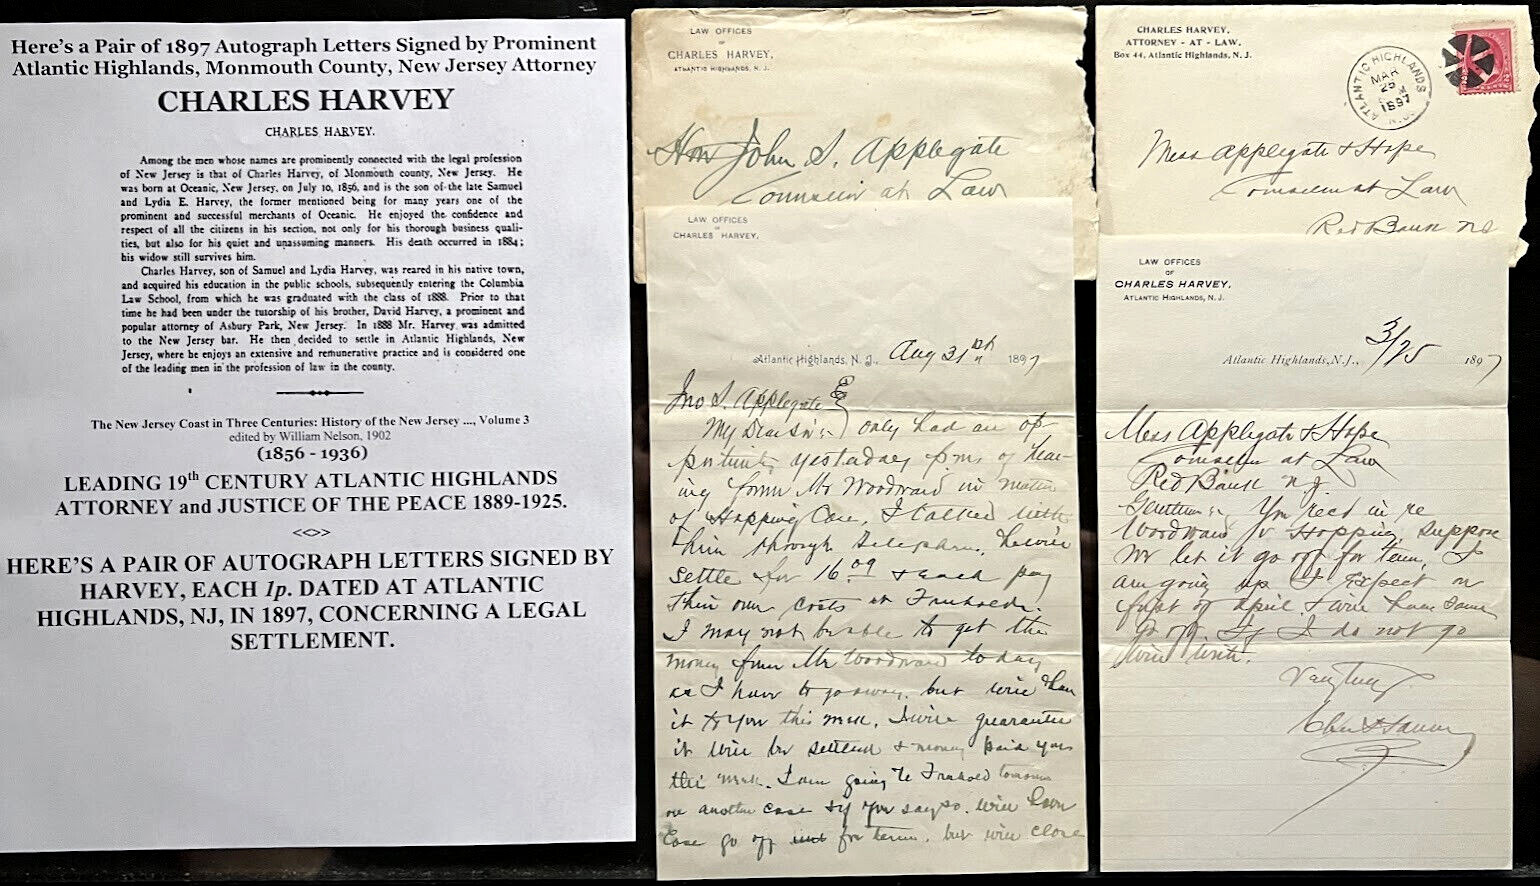 Here's a Pair of 1897 Autograph Letters Signed by Prominent
Atlantic Highlands, Monmouth County, New Jersey Attorney
CHARLES HARVEY
CHARLES HARVEY.
Among the men whose names are prominently connected with the legal profession
of New Jersey is that of Charles Harvey, of Monmouth county, New Jersey. He
was born at Oceanic, New Jersey, on July 10, 1856, and is the son of the late Samuel
and Lydia E. Harvey, the former mentioned being for many years one of the
prominent and successful merchants of Oceanic. He enjoyed the confidence and
respect of all the citizens in his section, not only for his thorough business quali-
ties, but also for his quiet and unassuming manners. His death occurred in 1884;
his widow still survives him.
Charles Harvey, son of Samuel and Lydia Harvey, was reared in his native town,
and acquired his education in the public schools, subsequently entering the Columbia
Law School, from which he was graduated with the class of 1888. Prior to that
time he had been under the tutorship of his brother, David Harvey, a prominent and
popular attorney of Asbury Park, New Jersey. In 1888 Mr. Harvey was admitted
to the New Jersey bar. He then decided to settle in Atlantic Highlands, New
Jersey, where he enjoys an extensive and remunerative practice and is considered one
of the leading men in the profession of law in the county.
The New Jersey Coast in Three Centuries: History of the New Jersey ..., Volume 3
edited by William Nelson, 1902
(1856 - 1936)
LEADING 19th CENTURY ATLANTIC HIGHLANDS
ATTORNEY and JUSTICE OF THE PEACE 1889-1925.
<<>>
HERE'S A PAIR OF AUTOGRAPH LETTERS SIGNED BY
HARVEY, EACH 1p. DATED AT ATLANTIC
HIGHLANDS, NJ, IN 1897, CONCERNING A LEGAL
SETTLEMENT.
LAW OFFICES
OF
CHARLES HARVEY,
ATLANTIC HIGHLANDS, N. J.
Hon John S. Applegate
Counselor at Law
LAW OFFICES
OF
CHARLES HARVEY,
Atlantic Highlands, N. J., Aug 31 1897
Jno S. Applegate
My Dear Sir: I only had an op
portunity yesterday p.m. of hear-
ing from Mr Woodward in matter
of Hopping Case, I talked with
him through telephone, he will
settle for 16.00 & each pay
their own costs at Freehold.
I may not be able to get the
money from Mr Woodward to day
as I have to go away, but will
it to you this week, I will guarantee
it will be settled & money paid you
this week. I am going to Freehold tomorrow
on another case & if you say so. will have
Case go off for term, but will close
CHARLES HARVEY,
ATTORNEY - AT - LAW,
Box 44, Atlantic Highlands, N. J.
ATLANTIC HIGHLANDS
MAR
25
1897
N.J.
2
Mess Applegate & Hope
Counselor at Law
Red Bank NJ
LAW OFFICES
OF
CHARLES HARVEY,
ATLANTIC HIGHLANDS, N. J.
Atlantic Highlands, N. J., 3/25 1897
Mess Applegate & Hope
Counselor at Law
Red Bank NJ
Gentlemen: Yrs recd in re
Woodward v Hopping, suppose
we let it go off for term, I
am going up I expect on
first of April. & will have same
go off. If I do not go
will write.
Very truly
Chas Harvey